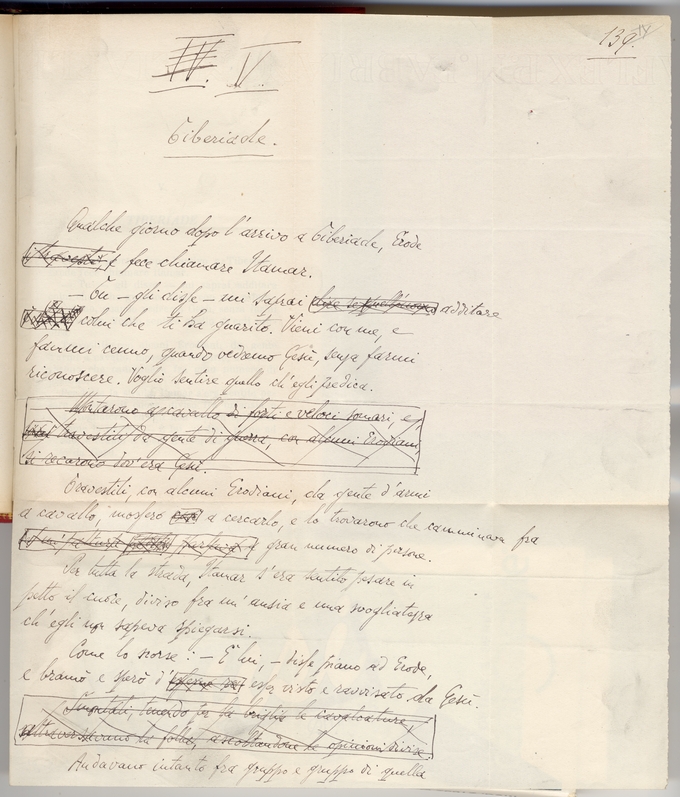 139.
IV. V.
Tiberiade.
Qualche giorno dopo l'arrivo a Tiberiade, Erode
fece chiamare Itamar.
— Tu — gli disse — mi saprai additare
colui che ti ha guarito. Vieni con me, e
fammi cenno, quando vedremo Gesù, senza farmi
riconoscere. Voglio sentire quello ch'egli predica.
Montarono a cavallo di forti e veloci somari, e,
travestiti da gente di guerra, con alcuni Erodiani,
si recarono dov'era Gesù.
Travestiti, con alcuni Erodiani, da gente d'armi
a cavallo, mossero a cercarlo, e lo trovarono che camminava fra
gran numero di persone.
Per tutta la strada, Itamar s'era sentito pesare in
petto il cuore, diviso fra un'ansia e una svogliatezza
ch'egli non sapeva spiegarsi.
Come lo scorse: — È lui, — disse piano ad Erode,
e bramò e sperò d'esser visto e ravvisato da Gesù.
Smontati, tenendo per la briglia le cavalcature,
attraversarono la folla, ascoltandone le opinioni divise.
Andavano intanto fra gruppo e gruppo di quella